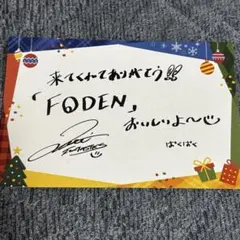 来てくれてありがとう!!
「FODEN」
おいしいよ〜
ぱくぱく